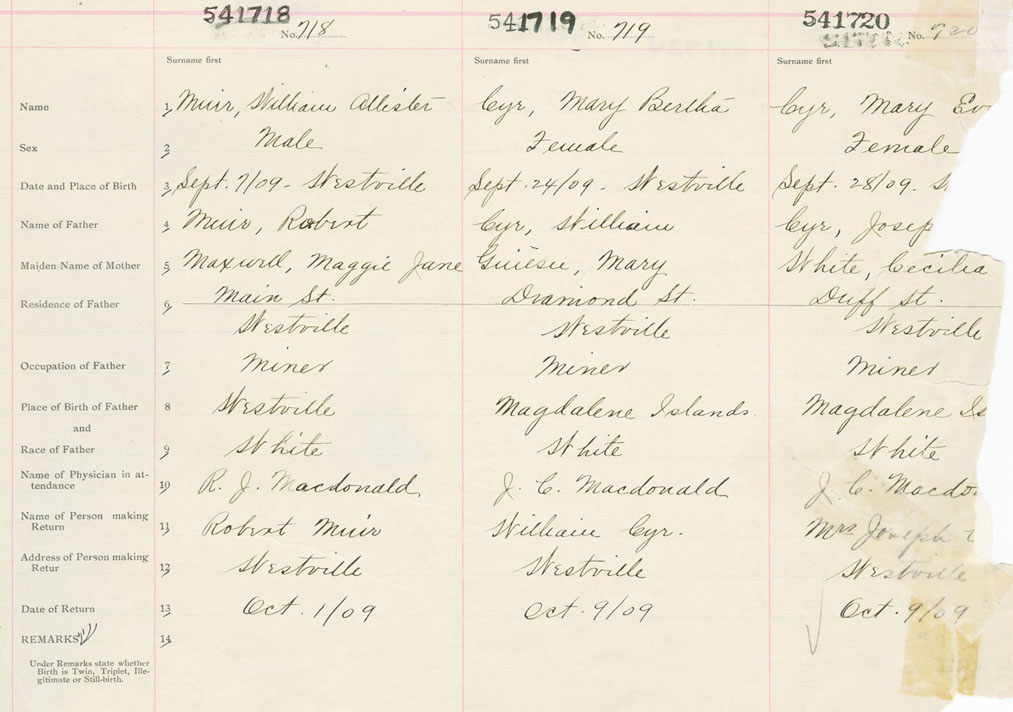 541718 541719 541720
No. 718 No. 719 No. 720
Surname first Surname first Surname first
Name 1 Muir, William Allister Cyr, Mary Bertha Cyr, Mary
Sex 2 Male Female Female
Date and Place of Birth 3 Sept. 7/09 - Westville Sept. 24/09 - Westville Sept. 28/09 -
Name of Father 4 Muir, Robert Cyr, William Cyr, Josep
Maiden Name of Mother 5 Maxwell, Maggie Jane Mary White, Cecilia
Residence of Father 6 Main St. Diamond St. Duff St.
Westville Westville Westville
Occupation of Father 7 Miner Miner Miner
Place of Birth of Father 8 Westville Magdalene Islands. Magdalene Is
and
Race of Father 9 White White White
Name of Physician in at-
tendance 10 R. J. Macdonald J. C. Macdonald J. C. Macdo
Name of Person making
Return 11 Robert Muir William Cyr. Mrs Joseph
Address of Person making
Retur 12 Westville Westville Westville
Date of Return 13 Oct. 1/09 Oct. 9/09 Oct. 9/09
REMARKS 14
Under Remarks state whether
Birth is Twin, Triplet, Ille-
gitimate or Still-birth.